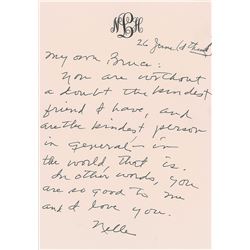 NBH
26 June
My own Bruce:
You are without
a doubt the kindest
friend I have, and
are the kindest person
in general — in
the world, that is.
In other words, you
are so good to me
and I love you.
Nelle